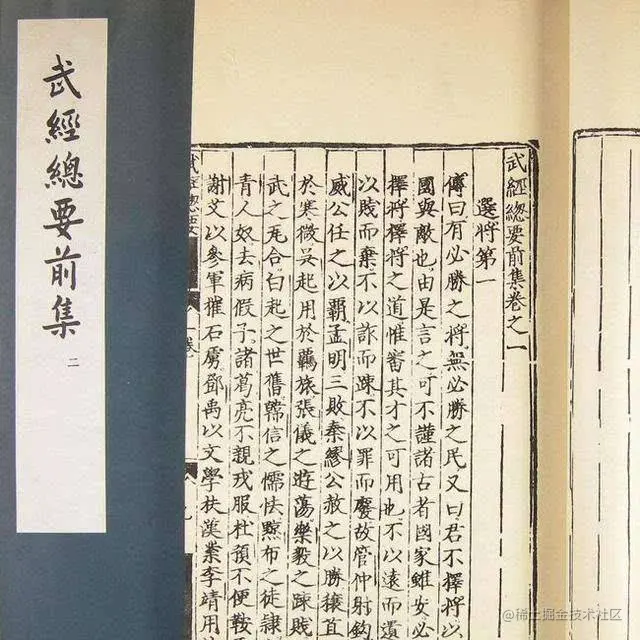 武經總要前集
二
武經總要前集卷之一
選將第一
傳曰有必勝之將無必勝之民又曰君不擇將以
國與敵也由是言之可不謹諸古者國家雖安必
擇將擇將之道惟審其才之可用也不以遠而遺
以賤而棄不以詐而踈不以罪而廢故管仲射鈎
威公任之以覇孟明三敗秦繆公赦之以勝穰苴
於寒微吳起用於羈旅張儀之遊蕩樂毅之踈賤
武之瓦合白起之世舊韓信之懦怯黥布之徒隸
青人奴去病假子諸葛亮不親戎服杜預不便鞍
謝艾以參軍摧石虜鄧禹以文學扶漢業李靖用
武經總要
一卷
@稀土掘金技术社区